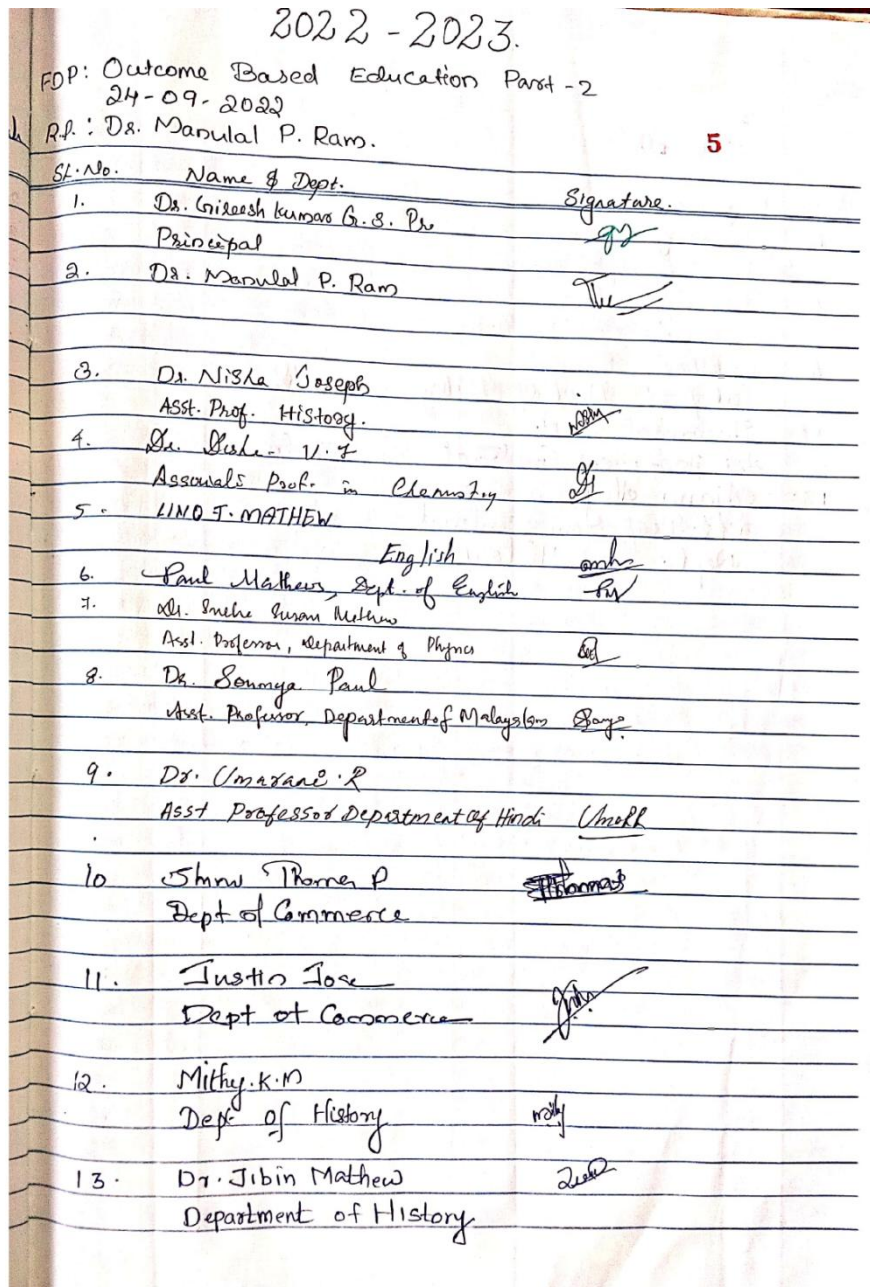 2022 - 2023.
FDP: Outcome Based Education Part - 2
24-09-2022
R.P. : Dr. Manulal P. Ram.
5
Sl. No. Name & Dept. Signature.
1. Dr. Gireesh Kumar G. S. Pr
Principal
2. Dr. Manulal P. Ram
3. Dr. Nisha Joseph
Asst. Prof. History.
4. Dr. V. J
Prof. in Chemistry
5. LINO J. MATHEW
English
6. Paul Mathews, Dept. of English
7. Dr. Sneha Susan Mathew
Asst. Professor, Department of Physics
8. Dr. Soumya Paul
Asst. Professor, Department of Malayalam
9. Dr. Umarani. R
Asst Professor Department of Hindi
10 Thomas P
Dept of Commerce
11. Justin Jose
Dept of Commerce
12. Mithy. K. M
Dept of History
13. Dr. Jibin Mathew
Department of History